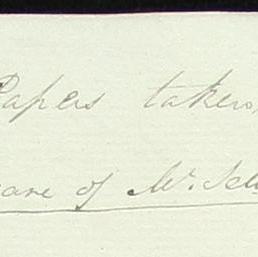 Papers taken
care of Mr.